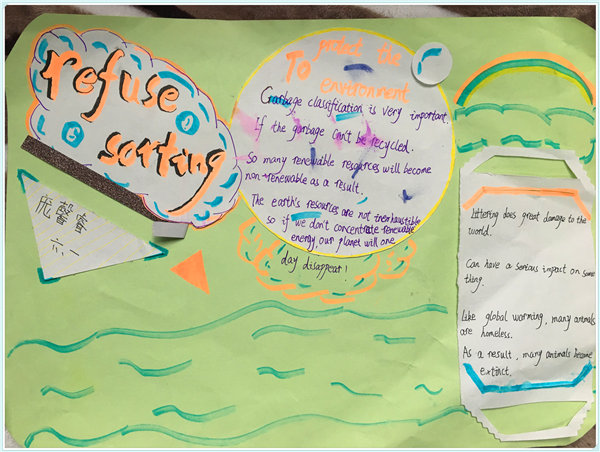 refuse
sorting
To protect the
environment
Garbage classification is very important.
If the garbage can't be recycled.
So many renewable resources will become
non-renewable as a result.
The earth's resources are not inexhaustible
so if we don't concentrate renewable
energy our planet will one
day disappear!
Littering does great damage to the
world.
Can have a serious impact on some
thing.
Like global warming, many animals
are homeless.
As a result, many animals become
extinct.